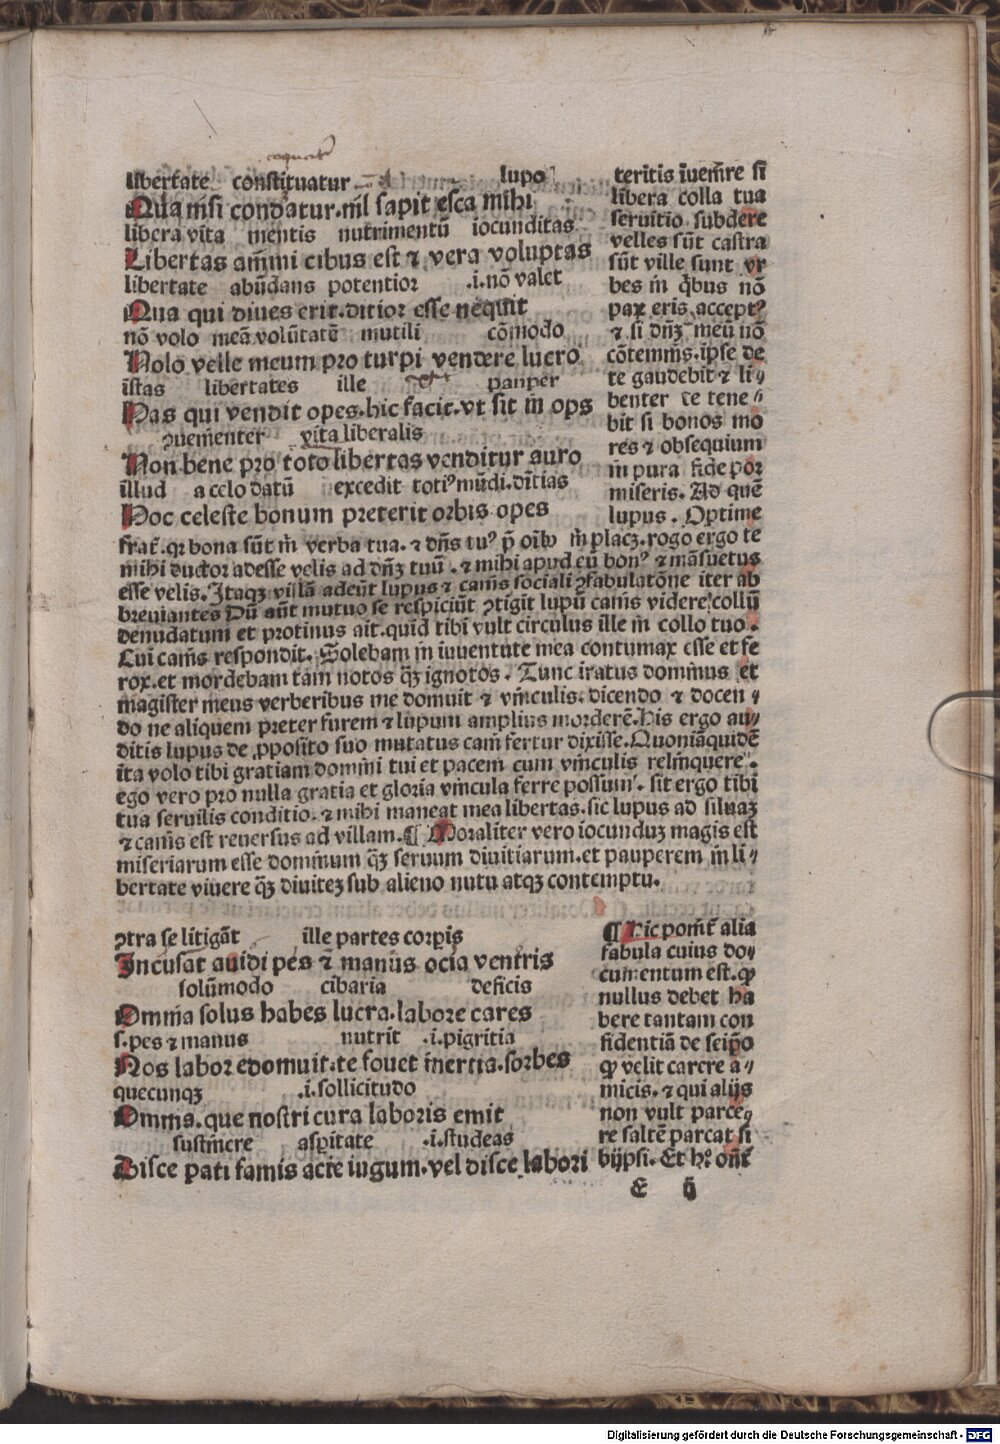 libertate constituatur lupo
Qua nisi condiatur.nil sapit esca mihi
libera vita mentis nutrimentū iocunditas
Libertas animi cibus est ⁊ vera voluptas
libertate abūdans potentior .i.nō valet
Qua qui diues erit.ditior esse nequit
nō volo meā volūtatē mutili cōmodo
Nolo velle meum pro turpi vendere lucro
istas libertates ille pauper
Has qui vendit opes.hic facit.vt sit in ops
ꝯuenienter vita liberalis
Non bene pro toto libertas venditur auro
illud a celo datū excedit totiꝰ mūdi.diītias
Hoc celeste bonum preterit orbis opes
teritis iuenire si
libera colla tua
seruitio subdere
velles sūt castra
sūt ville sunt vr
bes in q̄bus nō
pax eris acceptꝰ
⁊ si dn̄ꝫ meū nō
cōtemnis.ipse de
te gaudebit ⁊ li〃
benter te tene〃
bit si bonos mo
res ⁊ obsequium
in pura fide por
miseris. Ad quē
lupus. Optime
frat̄.qꝛ bona sūt in verba tua.⁊ dn̄s tuꝰ p̄ oīb in placꝫ.rogo ergo te
mihi ductor adesse velis ad dn̄ꝫ tuū.⁊ mihi apud eū bonꝰ ⁊ māsuetus
esse velis.Itaqꝫ villā adeūt lupus ⁊ canis sociali ꝯfabulatōne iter ab
breuiantes Dū aūt mutuo se respiciūt ꝯtigit lupū canis videre collū
denudatum et protinus ait.quid tibi vult circulus ille in collo tuo.
Cui canis respondit.Solebam in iuuentute mea contumax esse et fe
rox.et mordebam tam notos qꝫ ignotos. Tunc iratus dominus et
magister meus verberibus me domuit ⁊ vinculis.dicendo ⁊ docen〃
do ne aliquem preter furem ⁊ lupum amplius morderē.His ergo au〃
ditis lupus de ꝓposito suo mutatus cani fertur dixisse.Quoniā quidē
ita volo tibi gratiam domini tui et pacem cum vinculis relinquere.
ego vero pro nulla gratia et gloria vincula ferre possum. sit ergo tibi
tua seruilis conditio.⁊ mihi maneat mea libertas.sic lupus ad siluaꝫ
⁊ canis est reuersus ad villam.¶ Moraliter vero iocunduꝫ magis est
miseriarum esse dominum qꝫ seruum diuitiarum.et pauperem in li〃
bertate viuere qꝫ diuiteꝫ sub alieno nutu atqꝫ contemptu.
ꝯtra se litigāt ille partes corꝑis
Incusat auidi pes ⁊ manus ocia ventris
solūmodo cibaria deficis
Omnia solus habes lucra.labore cares
s.pes ⁊ manus nutrit .i.pigritia
Nos labor edomuit.te fouet inertia.sorbes
quecunqꝫ .i.sollicitudo
Omnia.que nostri cura laboris emit
sustinere asꝑitate .i.studeas
Disce pati famis acre iugum.vel disce labori
¶ Hic ponit̄ alia
fabula cuius do〃
cumentum est.ꝙ
nullus debet ha
bere tantam con
fidentiā de seiꝑo
ꝙ velit carere a〃
micis.⁊ qui alijs
non vult parce〃
re saltē parcat si
bijpsi. Et hꝰ on̄t
E ij
Digitalisierung gefördert durch die Deutsche Forschungsgemeinschaft - DFG